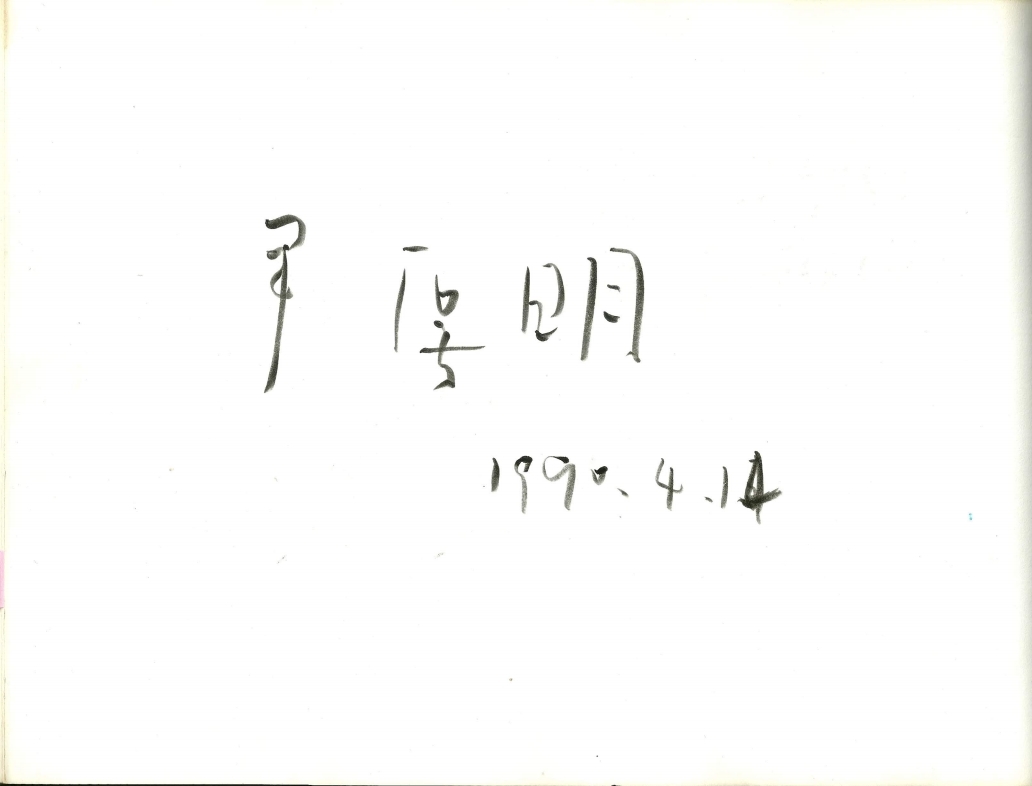 尹 厚明
1990. 4. 14